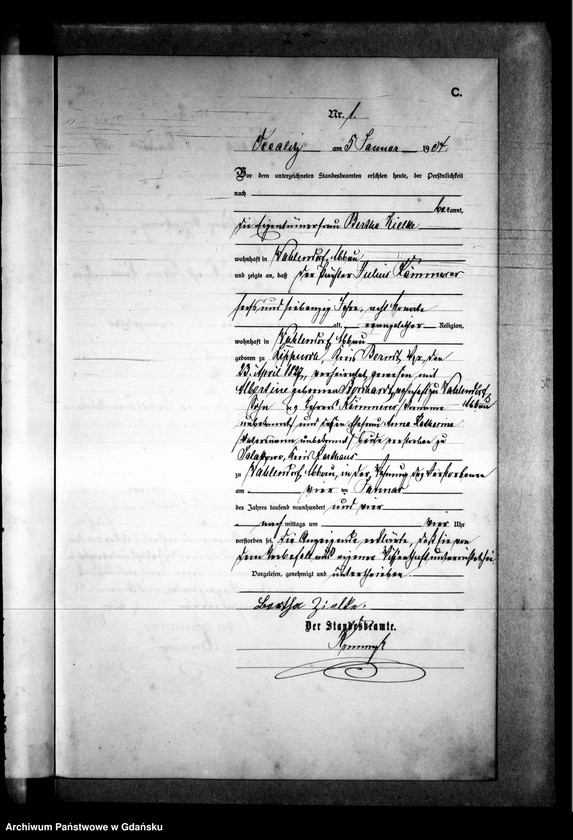 C.
Nr. 1.
am 5 Januar 1904.
Vor dem unterzeichneten Standesbeamten erschien heute, der Persönlichkeit
nach
bekannt,
die Eigentümerfrau Bertha Zielke
wohnhaft in Wahlendorf Abbau
und zeigte an, daß der Julius Kämmerer
sechs und siebenzig Jahre, acht Monate
alt, evangelischer Religion,
wohnhaft in Wahlendorf Abbau
geboren zu Kreis Berent Wpr., den
23. April 1827, verheiratet gewesen mit
Albertine geborenen Borchardt, Wahlendorf
Abbau
Sohn des Lehrers Kämmerer, Vorname
unbekannt, und dessen Ehefrau Anna Katharina
Vatersname unbekannt, beide verstorben zu
Kreis Karthaus
zu Wahlendorf Abbau, in der Wohnung des Verstorbenen
am vier ten Januar
des Jahres tausend neunhundert und vier
nach mittags um vier Uhr
verstorben sei. Die Anzeigende erklärte, daß sie von
dem Vorbefall aus eigener Wissenschaft unterrichtet sei
Vorgelesen, genehmigt und unterschrieben
Bertha Zielke.
Der Standesbeamte.
Archiwum Państwowe w Gdańsku